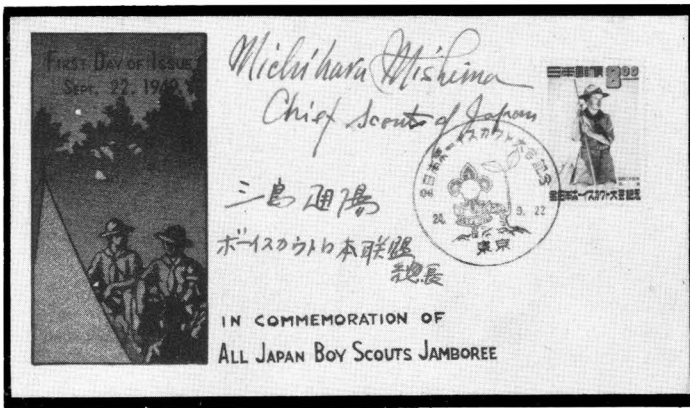 FIRST DAY OF ISSUE
SEPT. 22, 1949
Michiharu Mishima
Chief Scout of Japan
三島通陽
ボーイスカウト日本联盟
総長
日本郵便 8.00
全日本ボーイスカウト大会記念
全日本ボーイスカウト大会記念
24. 9. 22
東京
IN COMMEMORATION OF
ALL JAPAN BOY SCOUTS JAMBOREE